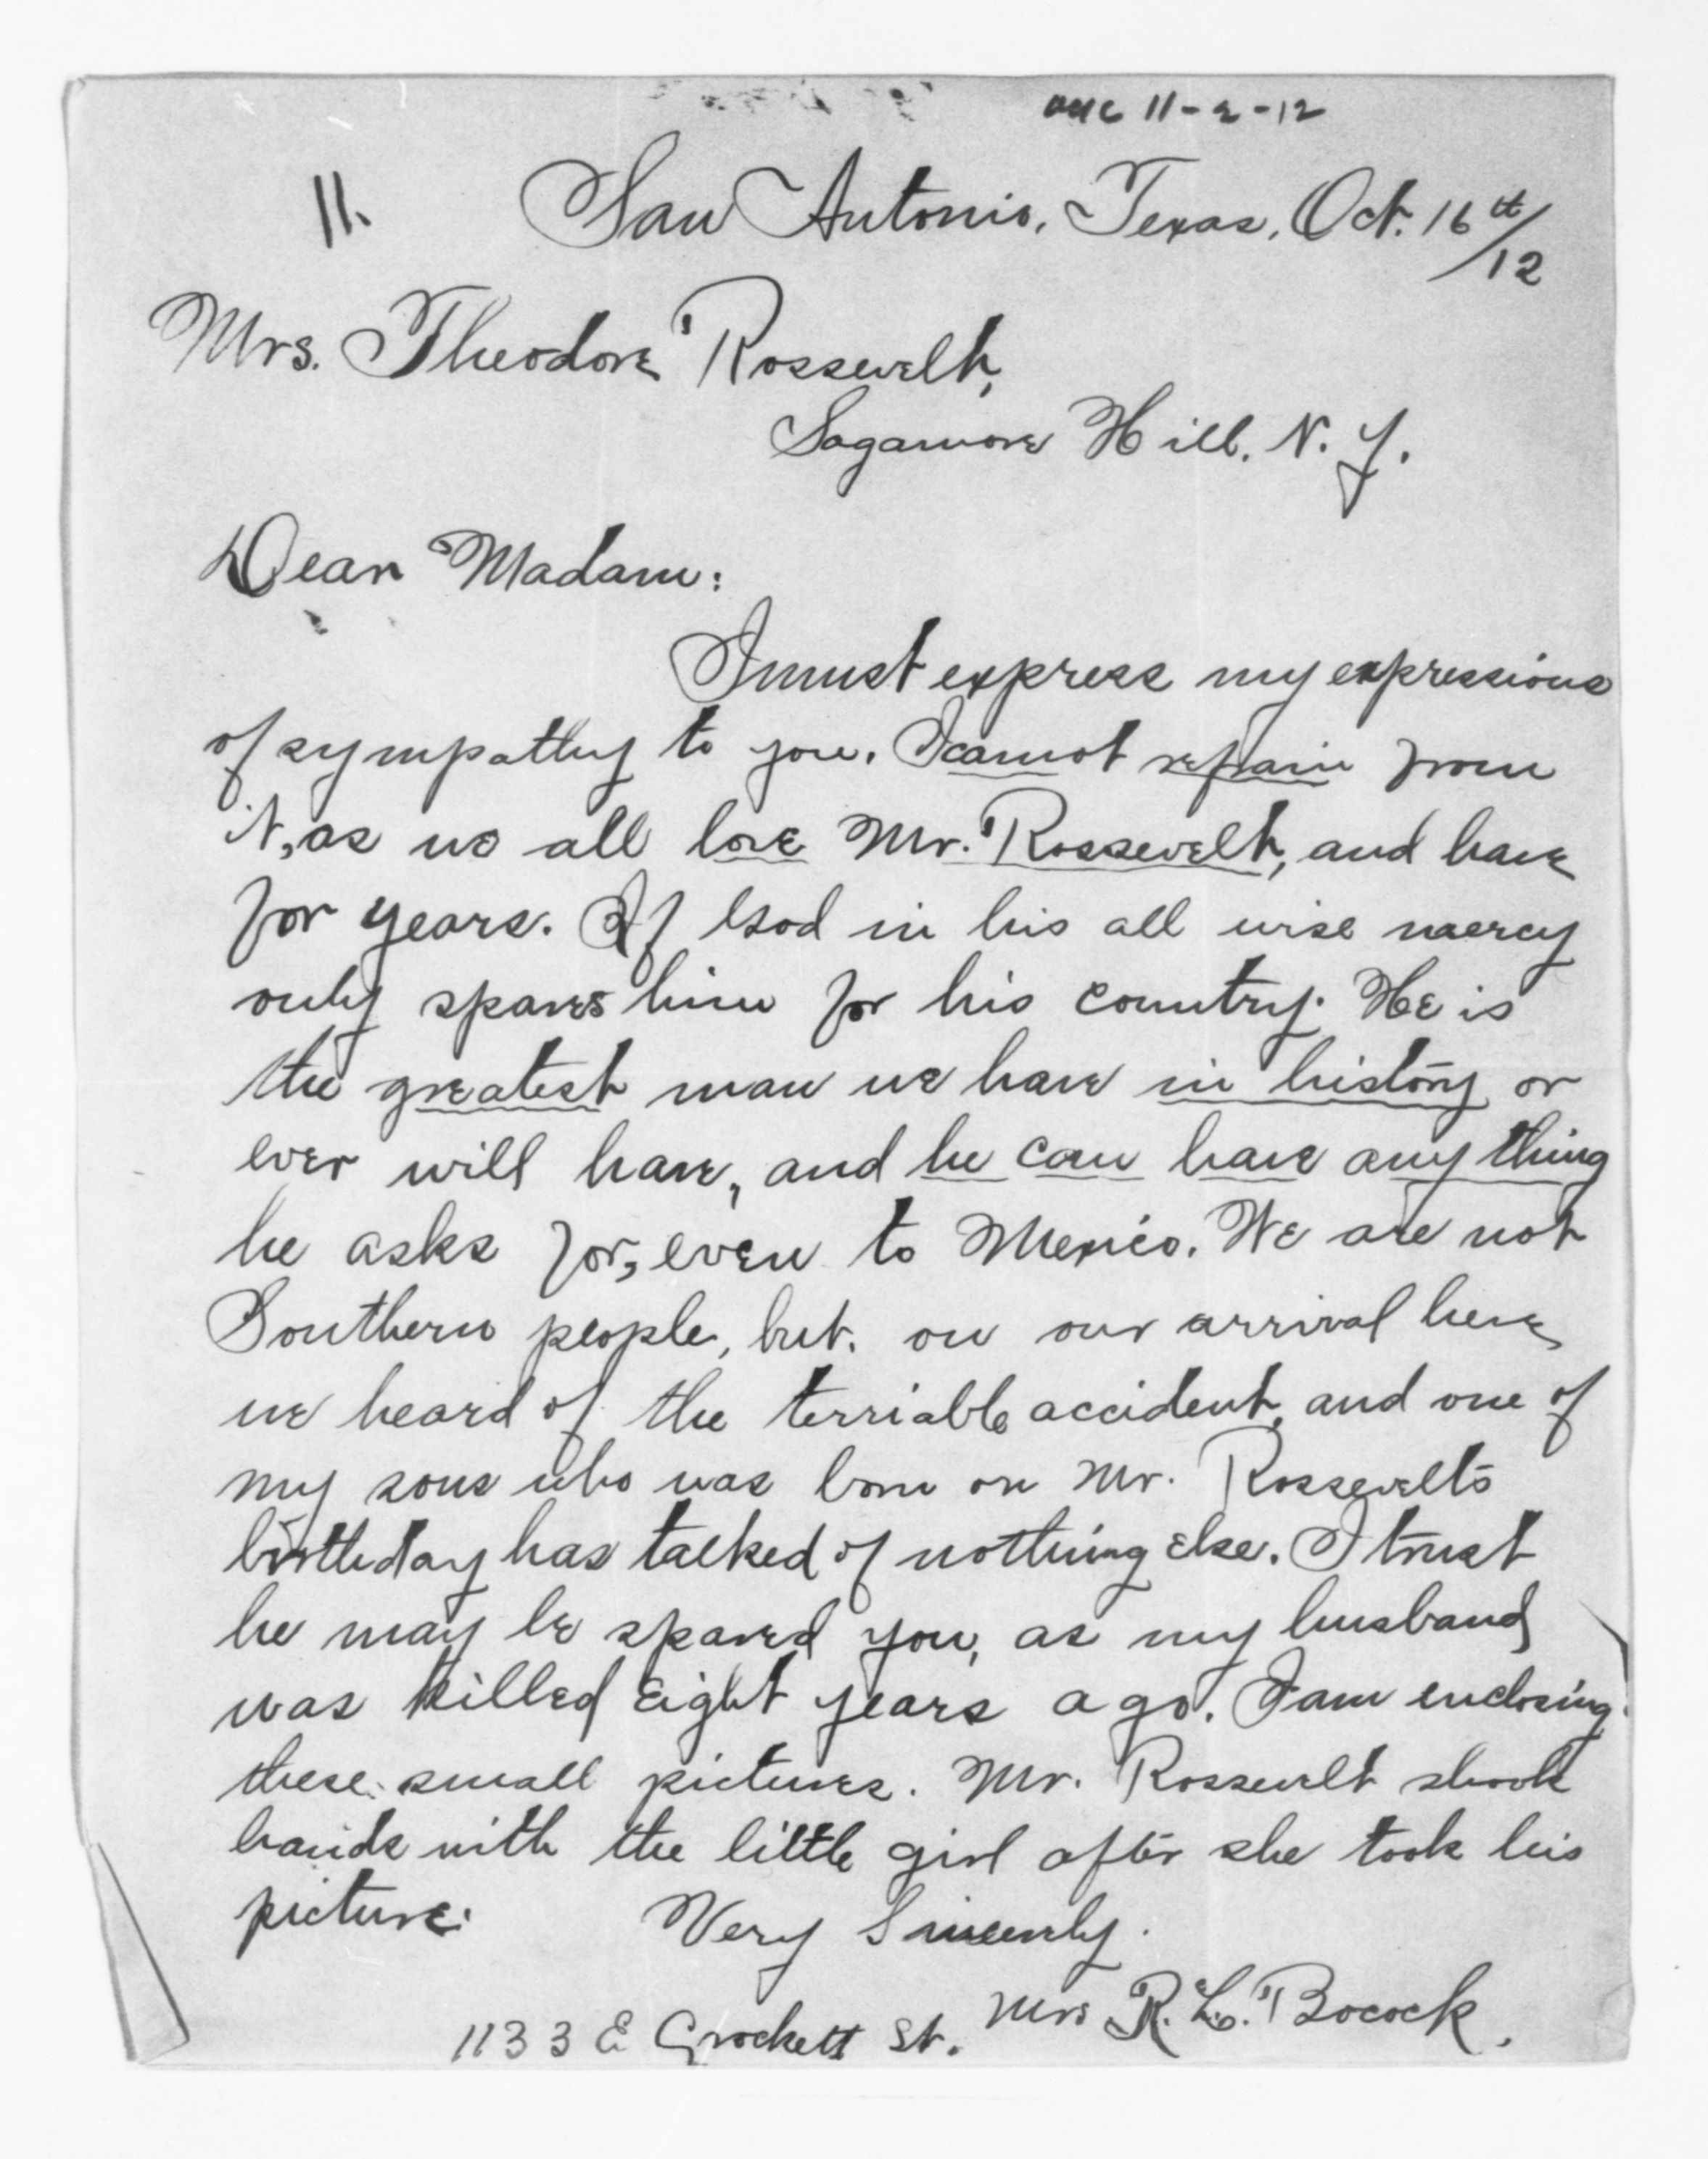 11-2-12
11.
San Antonio, Texas, Oct. 16th/12
Mrs. Theodore Rossevelt,
Sagamore Hill, N. Y.
Dear Madam:
I must express my expressions
of sympathy to you. I cannot refrain from
it, as we all love Mr. Rossevelt, and have
for years. If God in his all wise mercy
only spares him for his country. He is
the greatest man we have in history or
ever will have, and he can have any thing
he asks for, even to Mexico. We are not
Southern people, but. on our arrival here
we heard of the terriable accident, and one of
my sons who was born on Mr. Rossevelts
birthday has talked of nothing else. I trust
he may be spared you, as my husband
was killed eight years ago. I am enclosing
these small pictures. Mr. Rossevelt shook
hands with the little girl after she took his
picture. Very Sincerely.
Mrs R. L. Bocock.
1133 E Crockett St.